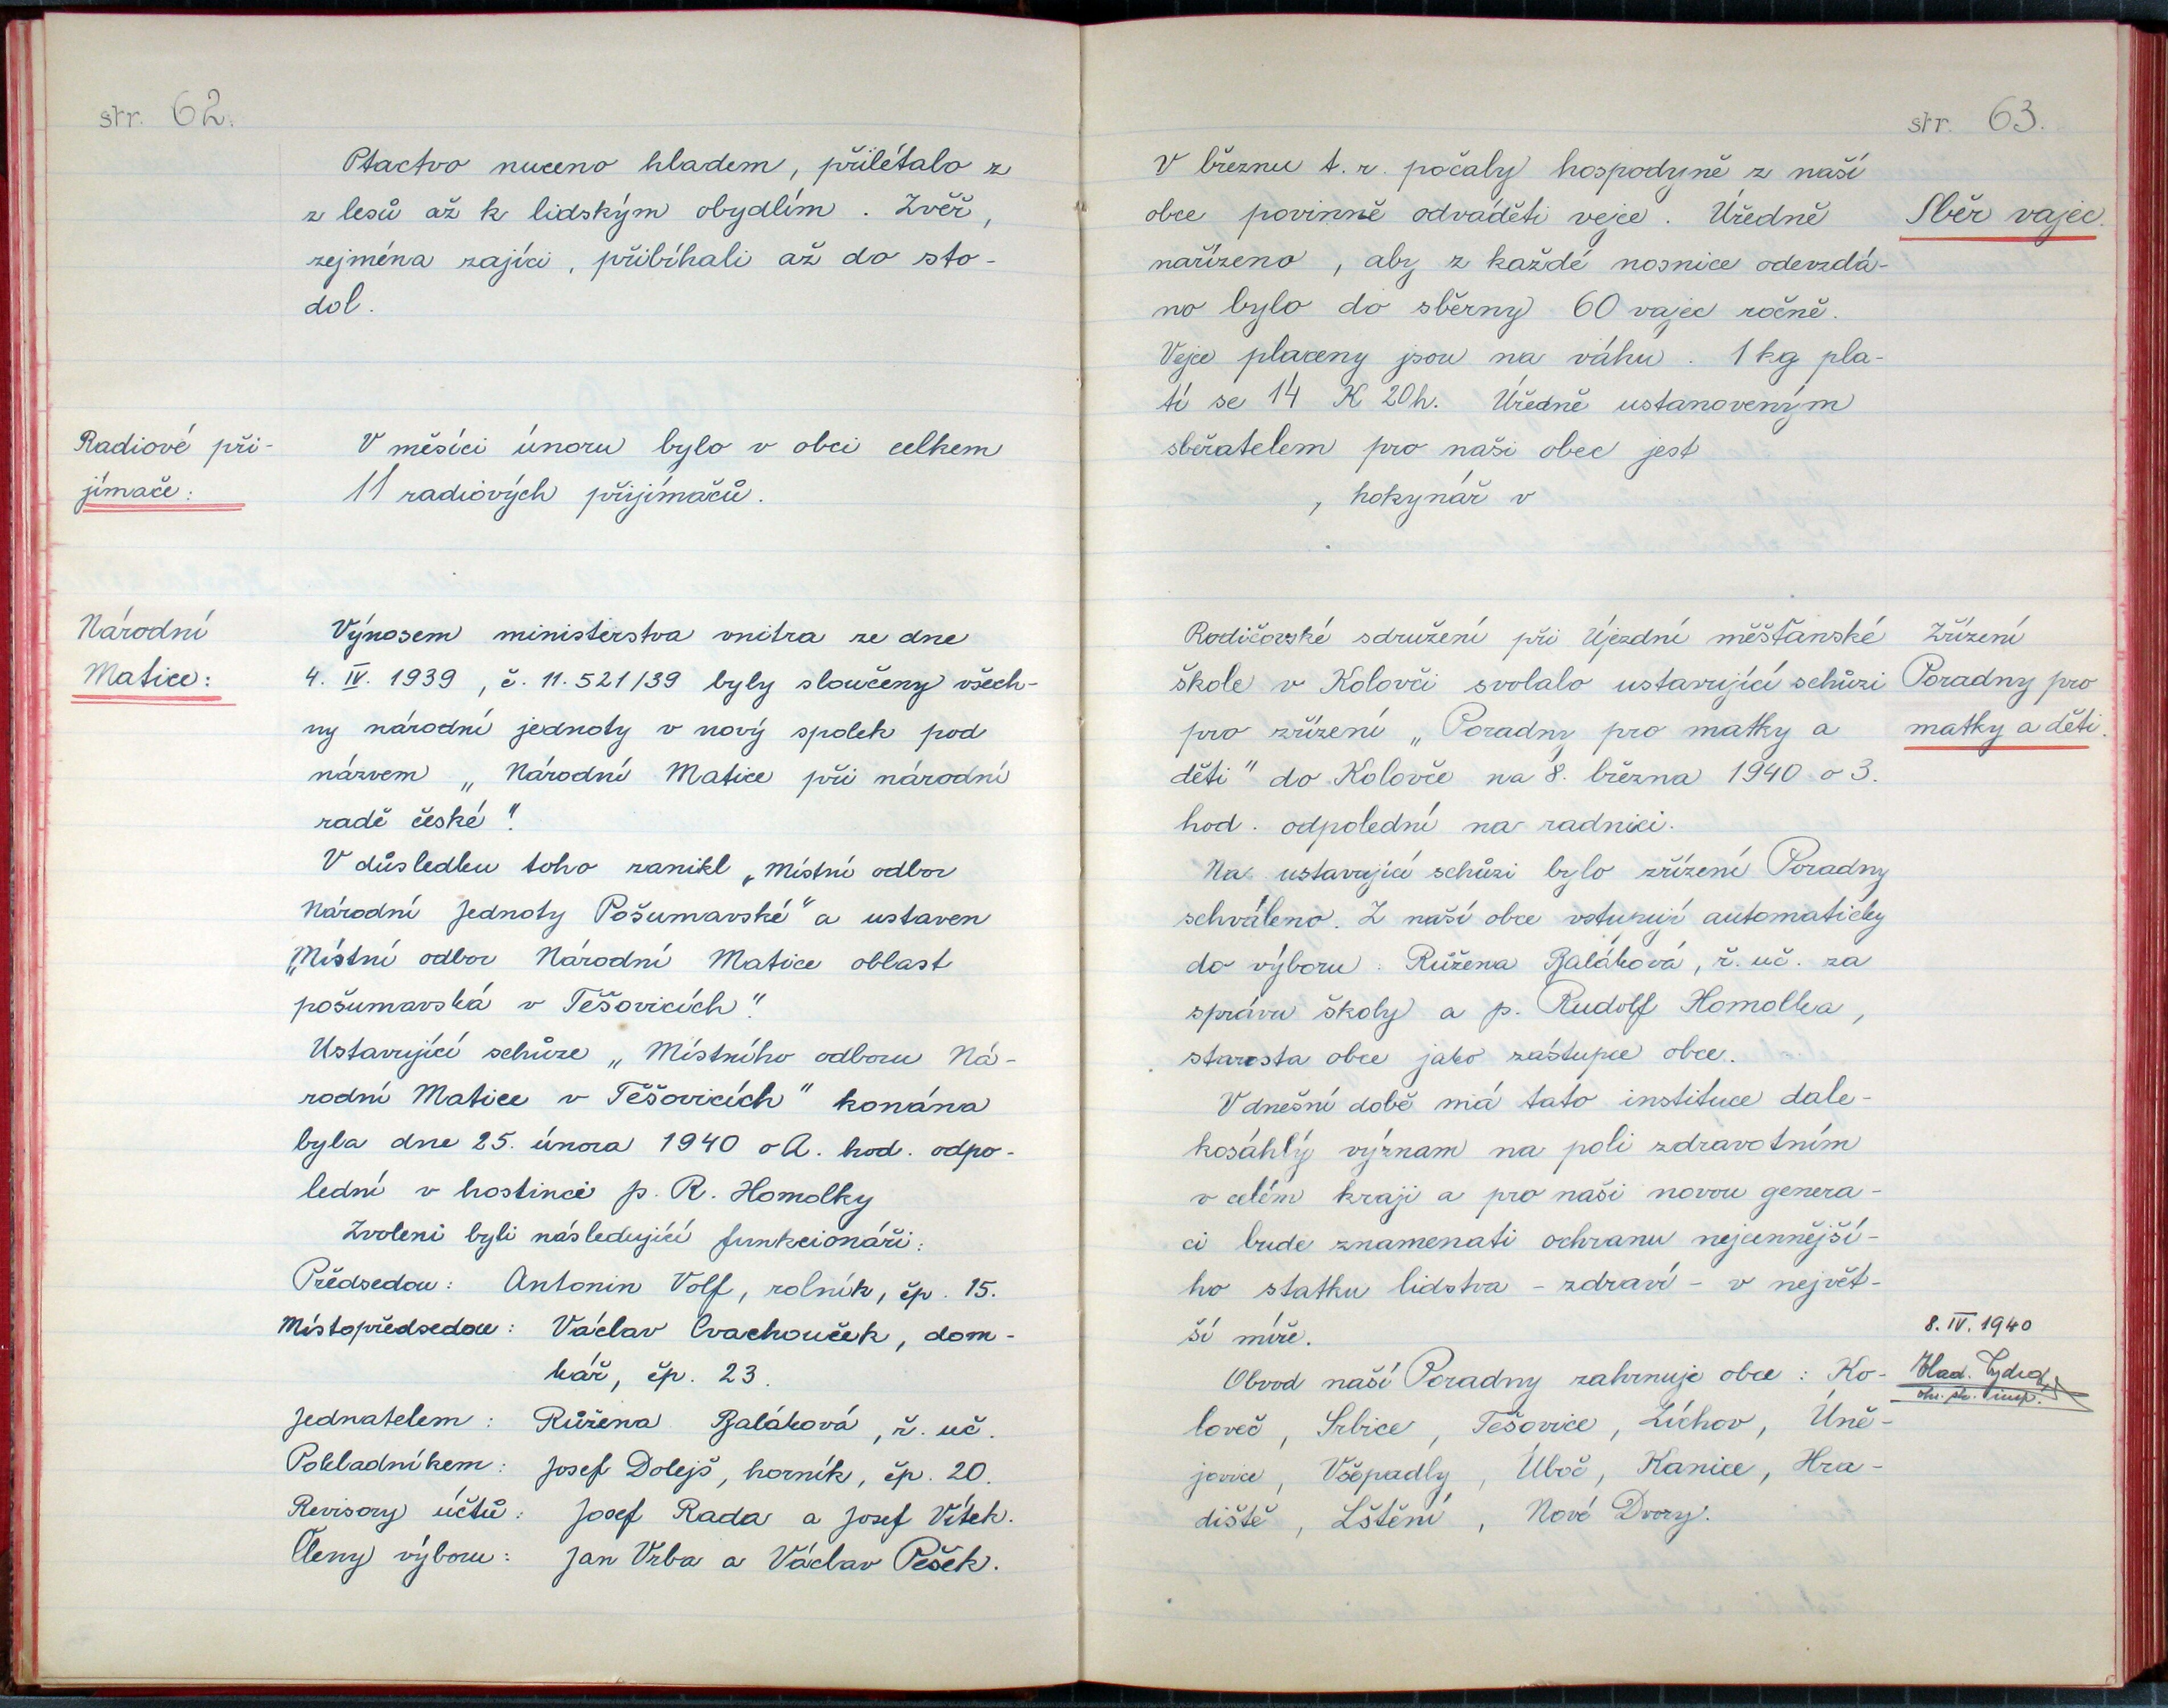 str. 62.
Ptactvo nuceno hladem, přilétalo z
z lesů až k lidským obydlím. Zvěř,
zejména zajíci, přibíhali až do sto-
dol.
Radiové při-
jímače:
V měsíci únoru bylo v obci celkem
11 radiových přijímačů.
Národní
Matice:
Výnosem ministerstva vnitra ze dne
4. IV. 1939, č. 11.521/39 byly sloučeny všech-
ny národní jednoty v nový spolek pod
názvem „Národní Matice při národní
radě české".
V důsledku toho zanikl „Místní odbor
Národní Jednoty Pošumavské" a ustaven
„Místní odbor Národní Matice oblast
pošumavská v Těšovicích".
Ustavující schůze „Místního odboru Ná-
rodní Matice v Těšovicích" konána
byla dne 25. února 1940 o 2. hod. odpo-
lední v hostinci p. R. Homolky
Zvoleni byli následující funkcionáři:
Předsedou: Antonin Volf, rolník, čp. 15.
Místopředsedou: Václav Cvachouček, dom-
kář, čp. 23.
Jednatelem: Růžena Baláková, ř. uč.
Pokladníkem: Josef Dolejš, horník, čp. 20.
Revisory účtů: Josef Rada a Josef Vítek.
Členy výboru: Jan Vrba a Václav Pešek.
str. 63.
V březnu t. r. počaly hospodyně z naší
obce povinně odváděti vejce. Úředně
nařízeno, aby z každé nosnice odevzdá-
no bylo do sběrny 60 vajec ročně.
Vejce placeny jsou na váhu. 1 kg pla-
tí se 14 K 20h. Úředně ustanoveným
sběratelem pro naši obec jest
, hokynář v
Sběr vajec.
Rodičovské sdružení při Újezdní měšťanské
škole v Kolovči svolalo ustavující schůzi
pro zřízení „Poradny pro matky a
děti" do Kolovče na 8. března 1940 o 3.
hod. odpolední na radnici.
Zřízení
Poradny pro
matky a děti.
Na ustavující schůzi bylo zřízení Poradny
schváleno. Z naší obce vstupují automaticky
do výboru: Růžena Baláková, ř. uč. za
správu školy a p. Rudolf Homolka,
starosta obce jako zástupce obce.
V dnešní době má tato instituce dale-
kosáhlý význam na poli zdravotním
v celém kraji a pro naši novou genera-
ci bude znamenati ochranu nejcennější-
ho statku lidstva - zdraví - v největ-
ší míře.
Obvod naší Poradny zahrnuje obce: Ko-
loveč, Srbice, Těšovice, Zíchov, Úně-
jovice, Všepadly, Úboč, Kanice, Hra-
diště, Lštění, Nové Dvory.
8. IV. 1940